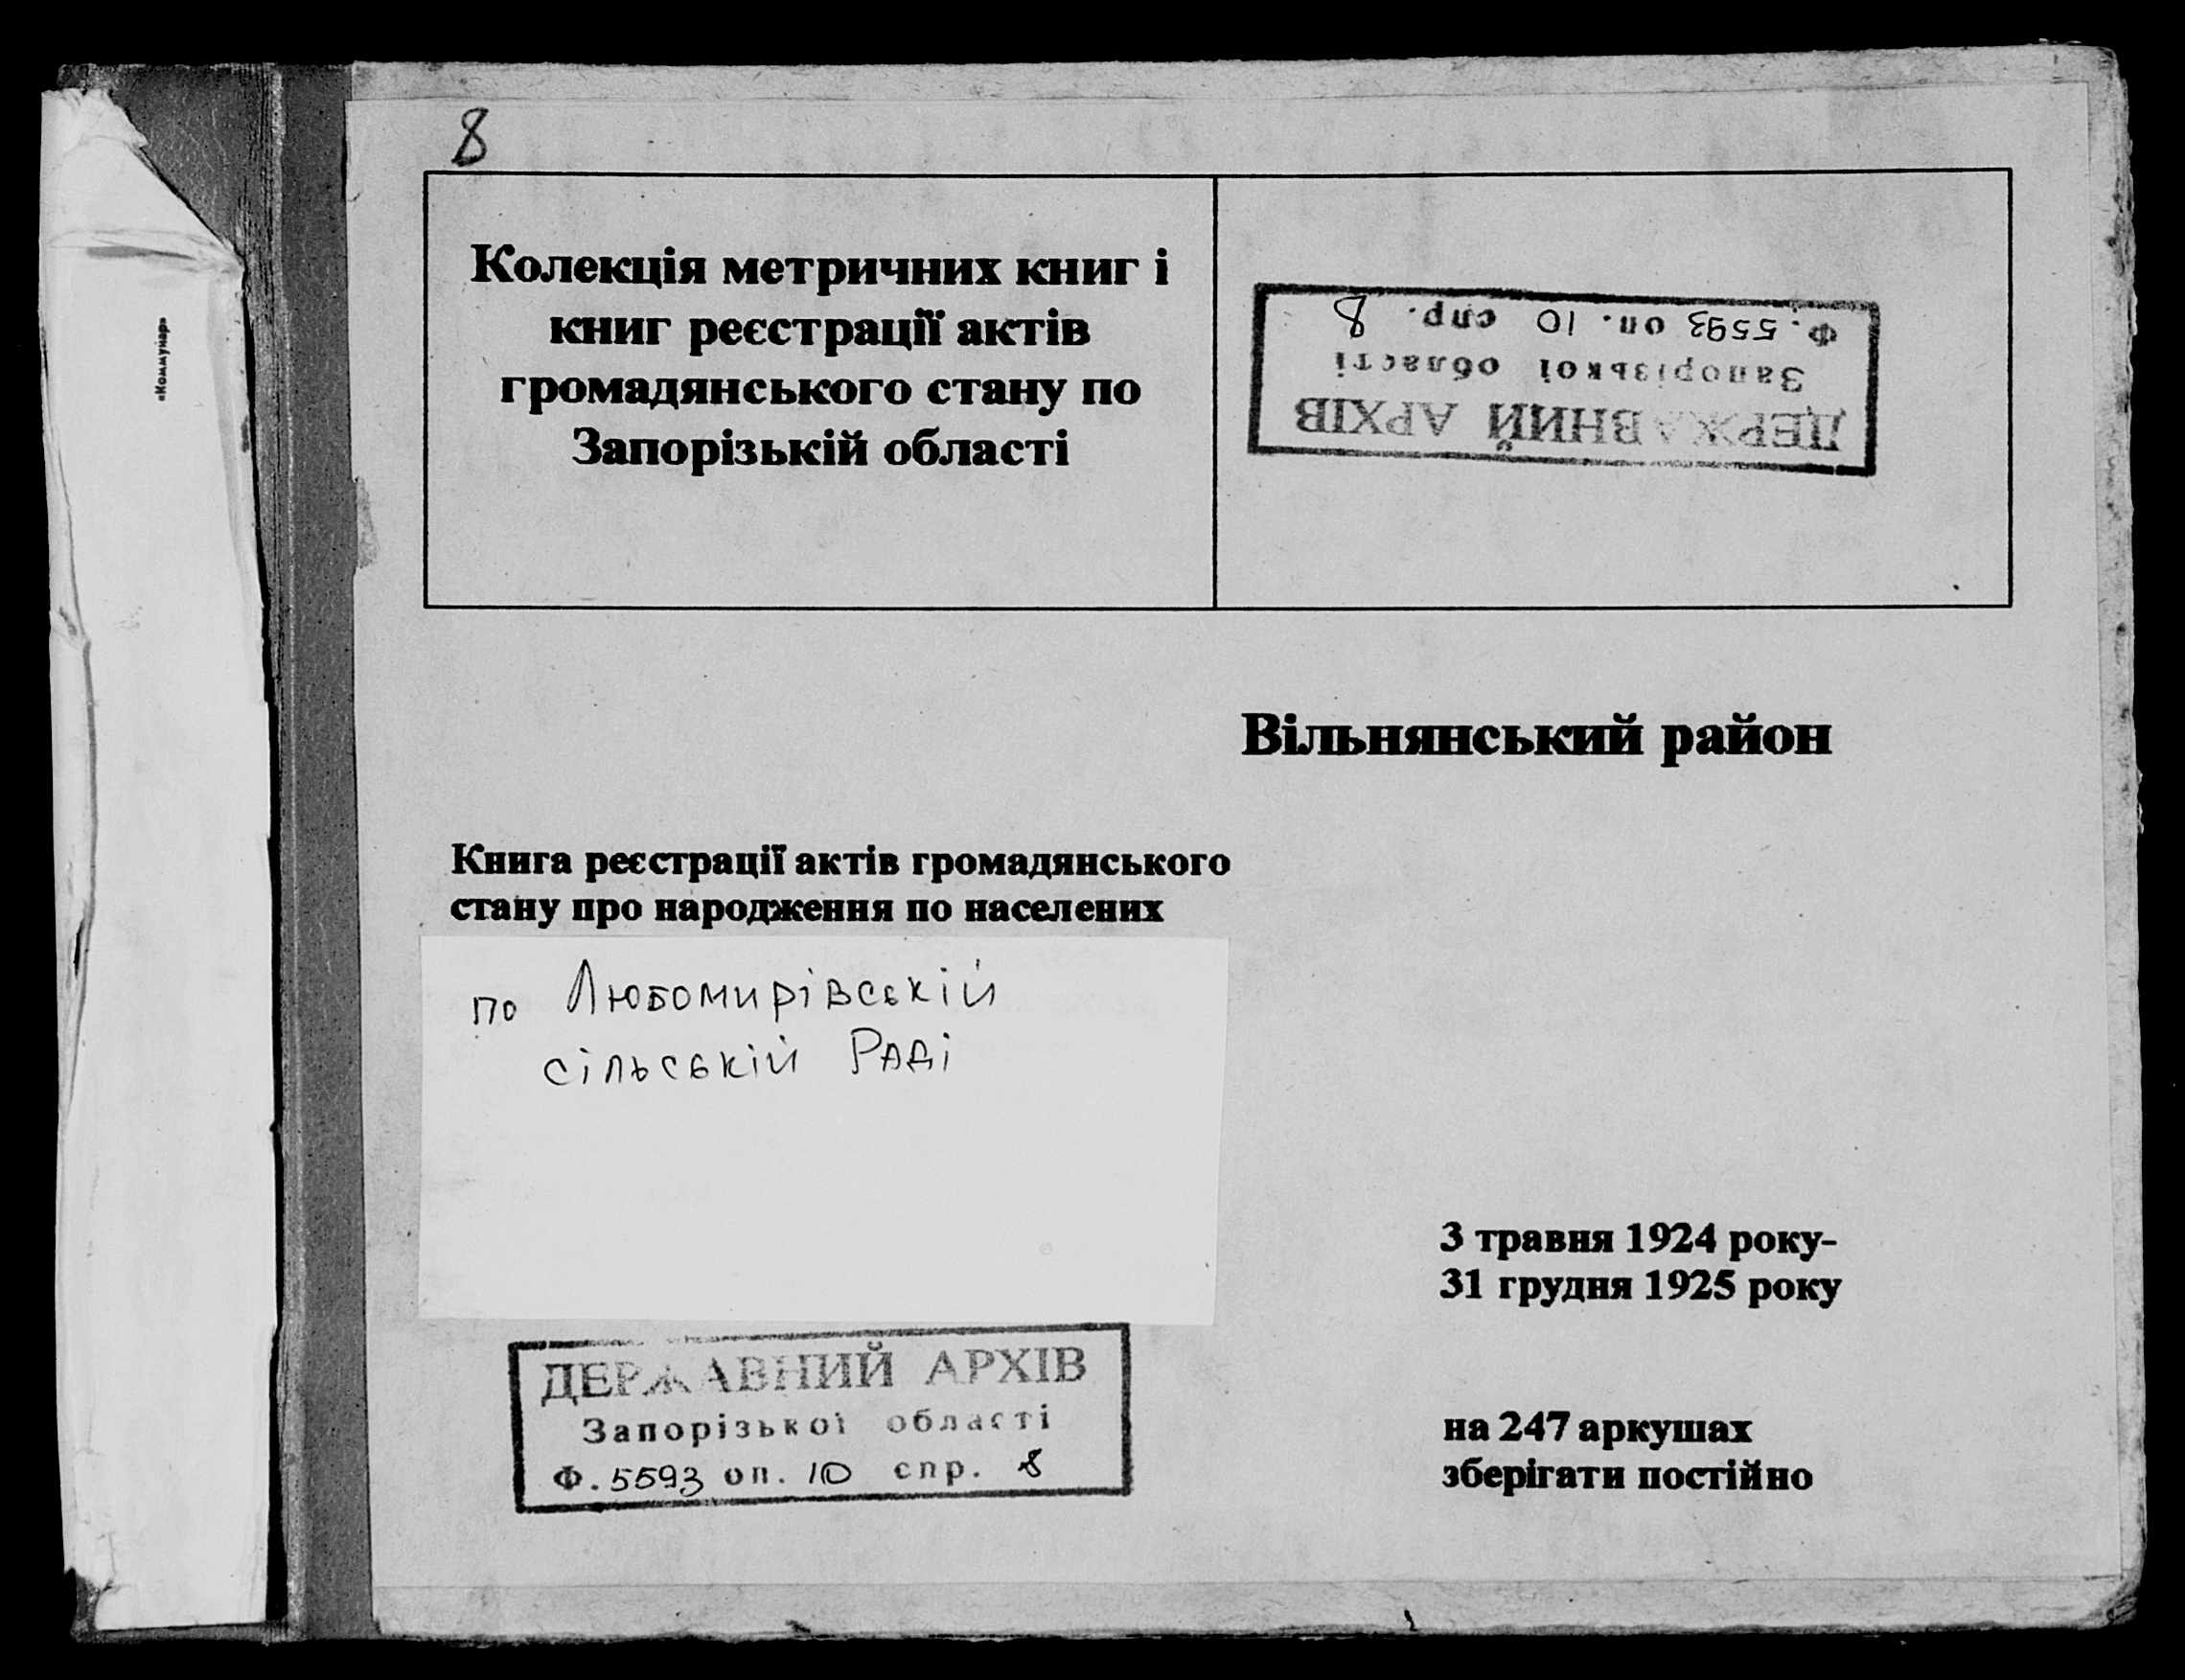 8
Колекція метричних книг і
книг реєстрації актів
громадянського стану по
Запорізькій області
ДЕРЖАВНИЙ АРХІВ
Запорізької області
Ф. 5593 оп. 10 спр. 8
«Коммунар»
Вільнянський район
Книга реєстрації актів громадянського
стану про народження по населених
по Любомирівській
сільській Раді
3 травня 1924 року-
31 грудня 1925 року
ДЕРЖАВНИЙ АРХІВ
Запорізької області
Ф. 5593 оп. 10 спр. 8
на 247 аркушах
зберігати постійно